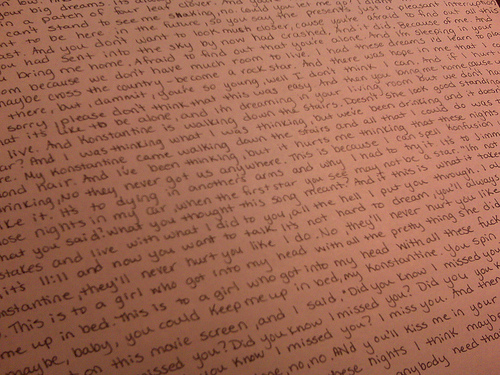 big dreams. It's
a patch of four leaf clover. And you're
start to see me shaking, no could you let me go! I didn't
nt to be here in the future, so you say the present's just a pleasant interruption
ast. And you don't wanna look much closer, cause you're afraid to find out all
had sent into the sky by now had crashed. And it did. Because of me. And
bring me home. Afraid to find out that you're alone. And I'm sleeping in your
om because we don't have much room to live. I had these dreams to learn to
maybe cross the country - become a rock star. And there was hope in me that I
there, but dammit, you're so young, well I don't think I can. And I'm
sorry, please don't think that this was easy, then you bring me home, cause
at it's like to be alone, and I'm dreaming in your living room but we don't have
live. And Konstantine is walking down the stairs. Doesn't she look good
ar? And I was thinking what I was thinking, but we've been drinking and it doesn't
My Konstantine came walking down the stairs and all that I could do was
ond hair. And I've been thinking, but it hurts me thinking that these nights
rinking, No they never got us anywhere. This is because I can spell konfusion
like it. It's to dying in another's arms and why I had to try it. It's to
ose nights in my car when the first star you see may not be a star. I'm not
hat you said! What you thought this song meant? And if this is what it takes
stakes and live with what I did to you, all the hell I put you through. I
it's 11:11 and now you want to talk. It's not hard to dream, you'll always
nstantine, they'll never hurt you like I do. No they'll never hurt you like
This is to a girl who got into my head with all the pretty things she did
me up in bed. This is to a girl who got into my head with all these fu
maybe, baby, you could keep me up in bed, my Konstantine. You spin
on this movie screen, and I said, "Did you know I missed you
missed you? Did you know I missed you? Did you
you know I missed you? I miss you. And the
me, no, no. And you'll kiss me in your
these nights I think maybe
anybody need tha